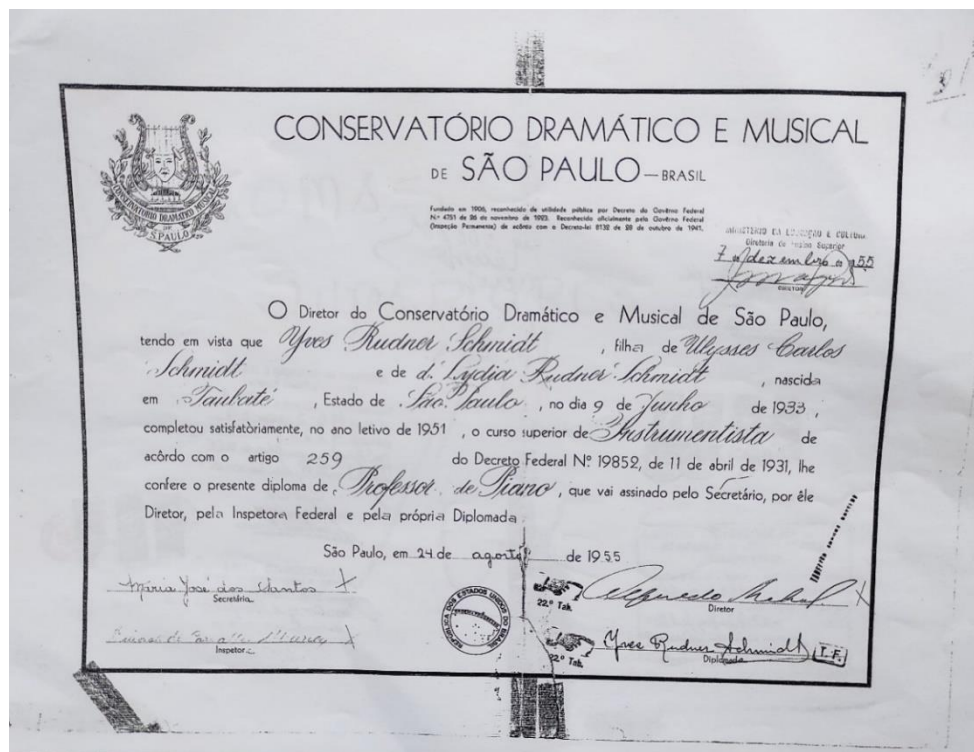 CONSERVATÓRIO DRAMÁTICO E MUSICAL
DE SÃO PAULO — BRASIL
CONSERVATORIO DRAMATICO MUSICAL
DE
S. PAULO
Fundado em 1906, reconhecido de utilidade pública por Decreto do Govêrno Federal
N.º 4751 de 26 de novembro de 1923. Reconhecido oficialmente pelo Govêrno Federal
(Inspeção Permanente) de acôrdo com o Decreto-lei 8132 de 29 de outubro de 1941.
MINISTÉRIO DA EDUCAÇÃO E CULTURA
Diretoria do Ensino Superior
7 de dezembro de 1955
DIRETOR
O Diretor do Conservatório Dramático e Musical de São Paulo,
tendo em vista que Yves Rudner Schmidt, filha de Ulysses Carlos
Schmidt e de d. Lydia Rudner Schmidt, nascida
em Taubaté, Estado de São Paulo, no dia 9 de Junho de 1933,
completou satisfatòriamente, no ano letivo de 1951, o curso superior de Instrumentista de
acôrdo com o artigo 259 do Decreto Federal Nº 19852, de 11 de abril de 1931, lhe
confere o presente diploma de Professor de Piano, que vai assinado pelo Secretário, por êle
Diretor, pela Inspetora Federal e pela própria Diplomada.
São Paulo, em 24 de agosto de 1955
Maria José dos Santos X
Secretária
22.º Tab.
X
Diretor
REPÚBLICA DOS ESTADOS UNIDOS DO BRASIL
X
Inspetor
22º Tab.
Yves Rudner Schmidt T.F.
Diplomada